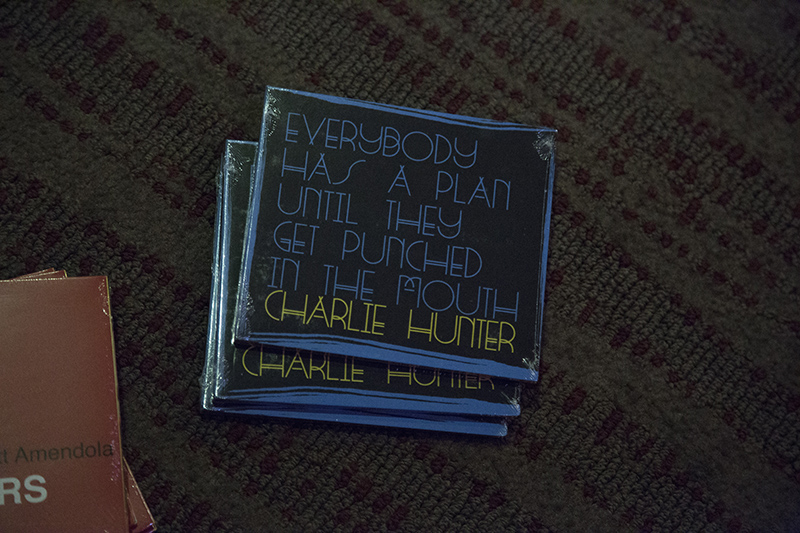 EVERYBODY
HAS A PLAN
UNTIL THEY
GET PUNCHED
IN THE MOUTH
CHARLIE HUNTER
CHARLIE HUNTER
Amendola
RS